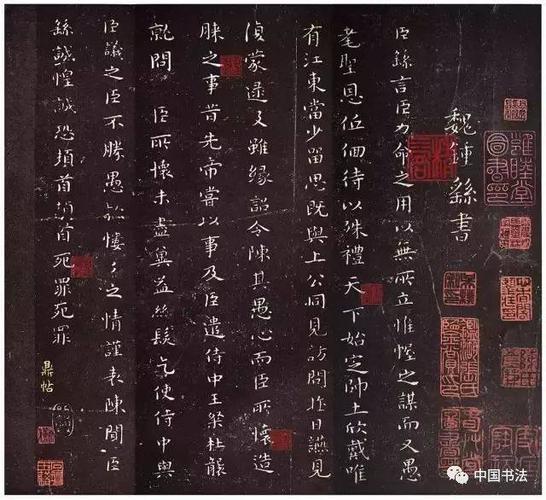 魏鍾繇書
臣繇言臣力命之用以無所立惟幄之謀而又愚
耄聖恩低佪待以殊禮天下始定帥土欣戴唯
有江東當少留思既與上公同見訪問昨日讌見
復蒙逮及雖緣詔令陳其愚心而臣所懷造
膝之事昔先帝嘗以事及臣遣侍中王粲杜襲
就問 臣所懷未盡冀益絲髮乞使侍中與
臣議之臣不勝愚款慺々之情謹表陳聞臣
繇誠惶誠恐頓首頓首死罪死罪
鼎帖
中国书法